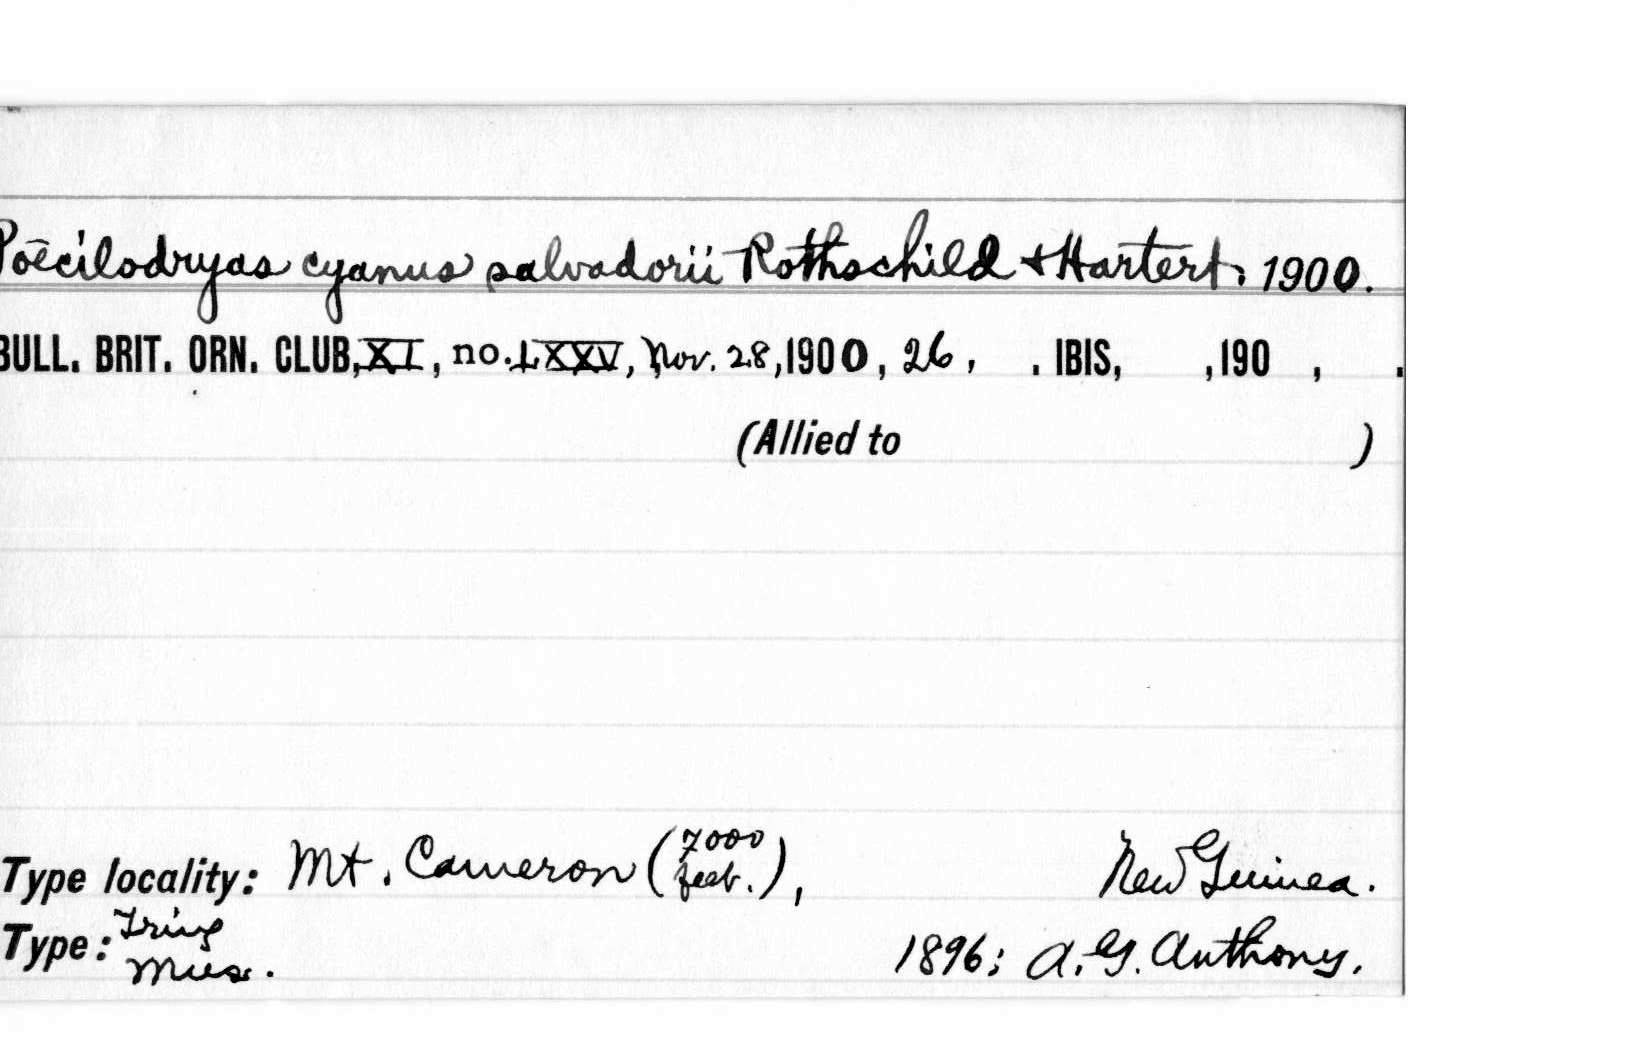 Poēcilodryas cyanus salvadorii Rothschild & Hartert, 1900.
BULL. BRIT. ORN. CLUB, XI, no. LXXV, Nov. 28, 1900, 26, . IBIS, , 190 , .
(Allied to )
Type locality: Mt. Cameron (7000 feet.), New Guinea.
Type: Tring Mus. 1896; A. G. Anthony.